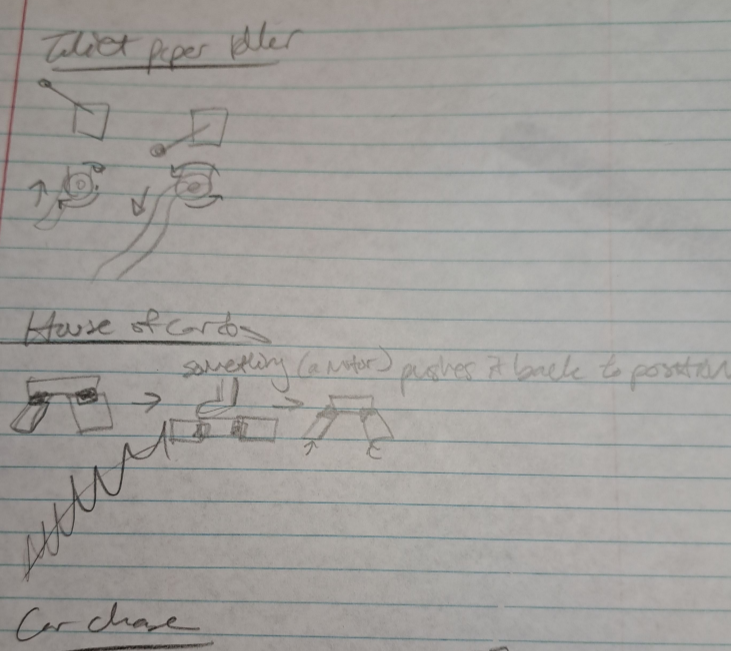 Toilet paper
House of cards
something (a motor) pushes it back to position
Car chase